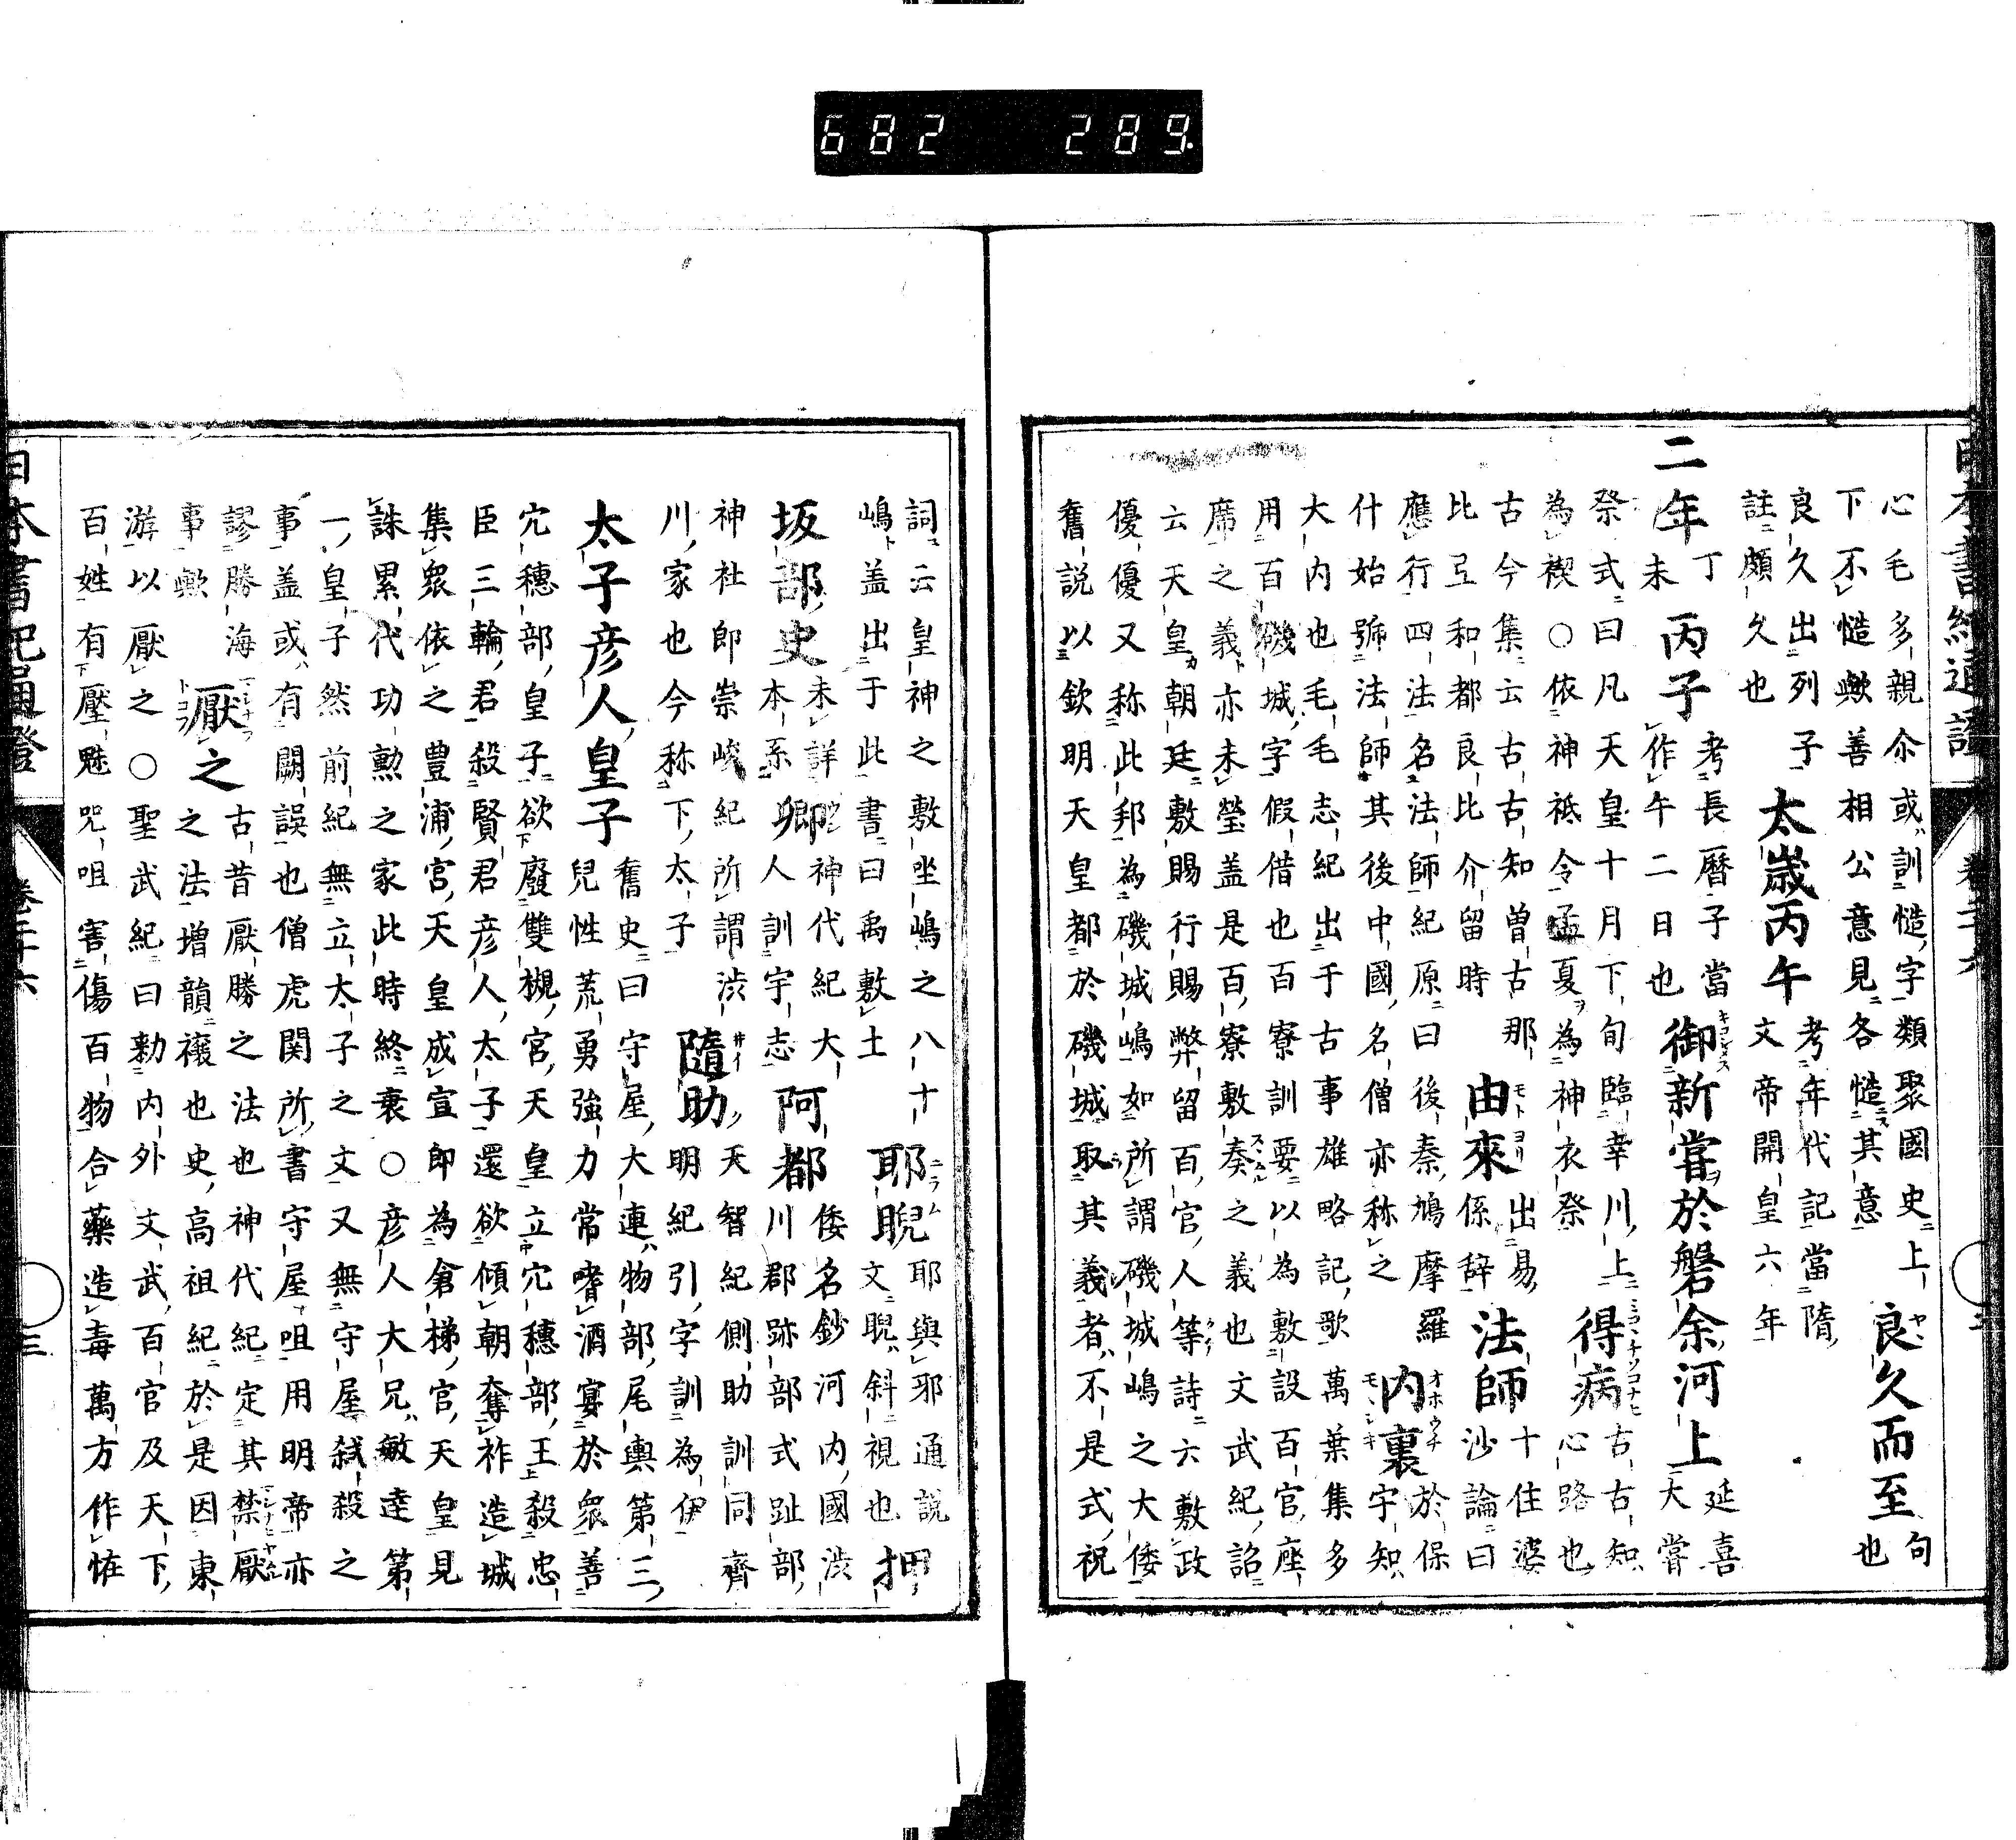 682 289
心毛多親尒或訓愷字類聚國史上
下不愷歟善相公意見各愷其意
良久而至
句
也
良久出列子
註頗久也
太歳丙午
考年代記當隋
文帝開皇六年
二年
丁
未
丙子
考長暦子當
作午二日也
御新嘗於磐余河上
延喜
大嘗
祭式曰凡天皇十月下旬臨幸川上
為禊○依神祇令孟夏為神衣祭
得病
古古知
心路也
古今集云古古知曽古那
比弖和都良比介留時
由來
出易
係辞
法師
十住婆
沙論曰
應行四法名法師紀原曰後秦鳩摩羅
什始號法師其後中國名僧亦称之
内裏
於保
宇知
大内也毛毛志紀出于古事雄略記歌萬葉集多
用百磯城字假借也百寮訓要以為敷設百官座
席之義亦未瑩盖是百寮敷奏之義也文武紀詔
云天皇朝廷敷賜行賜弊留百官人等詩六敷政
優優又称此邦為磯城嶋如所謂磯城嶋之大倭
舊説以欽明天皇都於磯城取其義者不是式祝
日本書紀通證
卷二十六
三
詞云皇神之敷坐嶋之八十
嶋盖出于此書曰禹敷土
耶睨
耶與邪通説
文睨斜視也
押
坂部史
未詳
本系
卿
神代紀大
人訓宇志
阿都
倭名鈔河内國渋
川郡跡部式趾部
神社即崇峻紀所謂渋
川家也今称下太子
隨助
天智紀側助訓同齊
明紀引字訓為伊
太子彦人皇子
舊史曰守屋大連物部尾輿第三
兒性荒勇強力常嗜酒宴於衆善
穴穗部皇子欲廢雙槻宮天皇立穴穗部王殺忠
臣三輪君殺賢君彦人太子還欲傾朝奪祚造城
集衆依之豊浦宮天皇成宣即為倉梯宮天皇見
誅累代功勲之家此時終衰○彦人大兄敏達第
一皇子然前紀無立太子之文又無守屋弑殺之
事盖或有闕誤也僧虎関所書守屋咀用明帝亦
謬勝海
事歟
厭之
古昔厭勝之法也神代紀定其禁厭
之法増韻禳也史高祖紀於是因東
游以厭之○聖武紀曰勅内外文武百官及天下
百姓有壓魅咒咀害傷百物合藥造毒萬方作恠
日本書紀通證
卷二十六
三